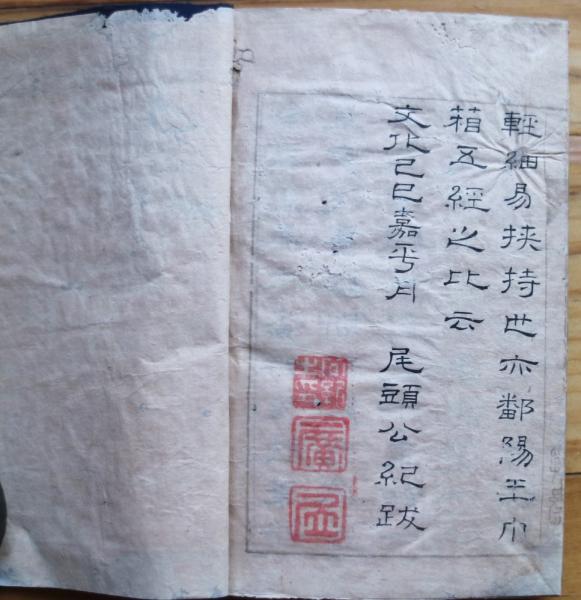 輕細易挟持也亦鄱陽王巾
箱五經之比云
文化己巳嘉平月　尾頭公紀跋